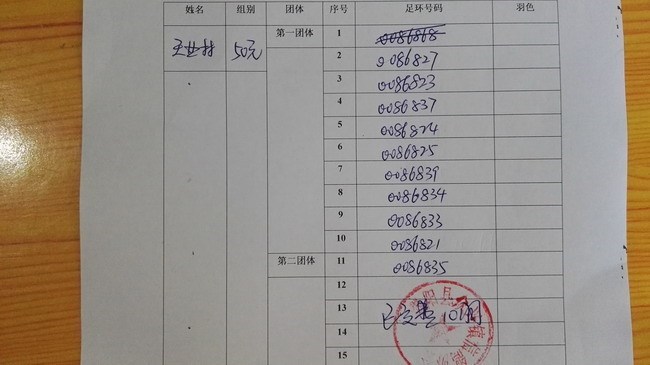 姓名 组别 团体 序号 足环号码 羽色
王业林 50元 第一团体 1 0086868
2 0086827
3 0086823
4 0086837
5 0086824
6 0086825
7 0086839
8 0086834
9 0086833
10 0086821
第二团体 11 0086835
12
13
14
15